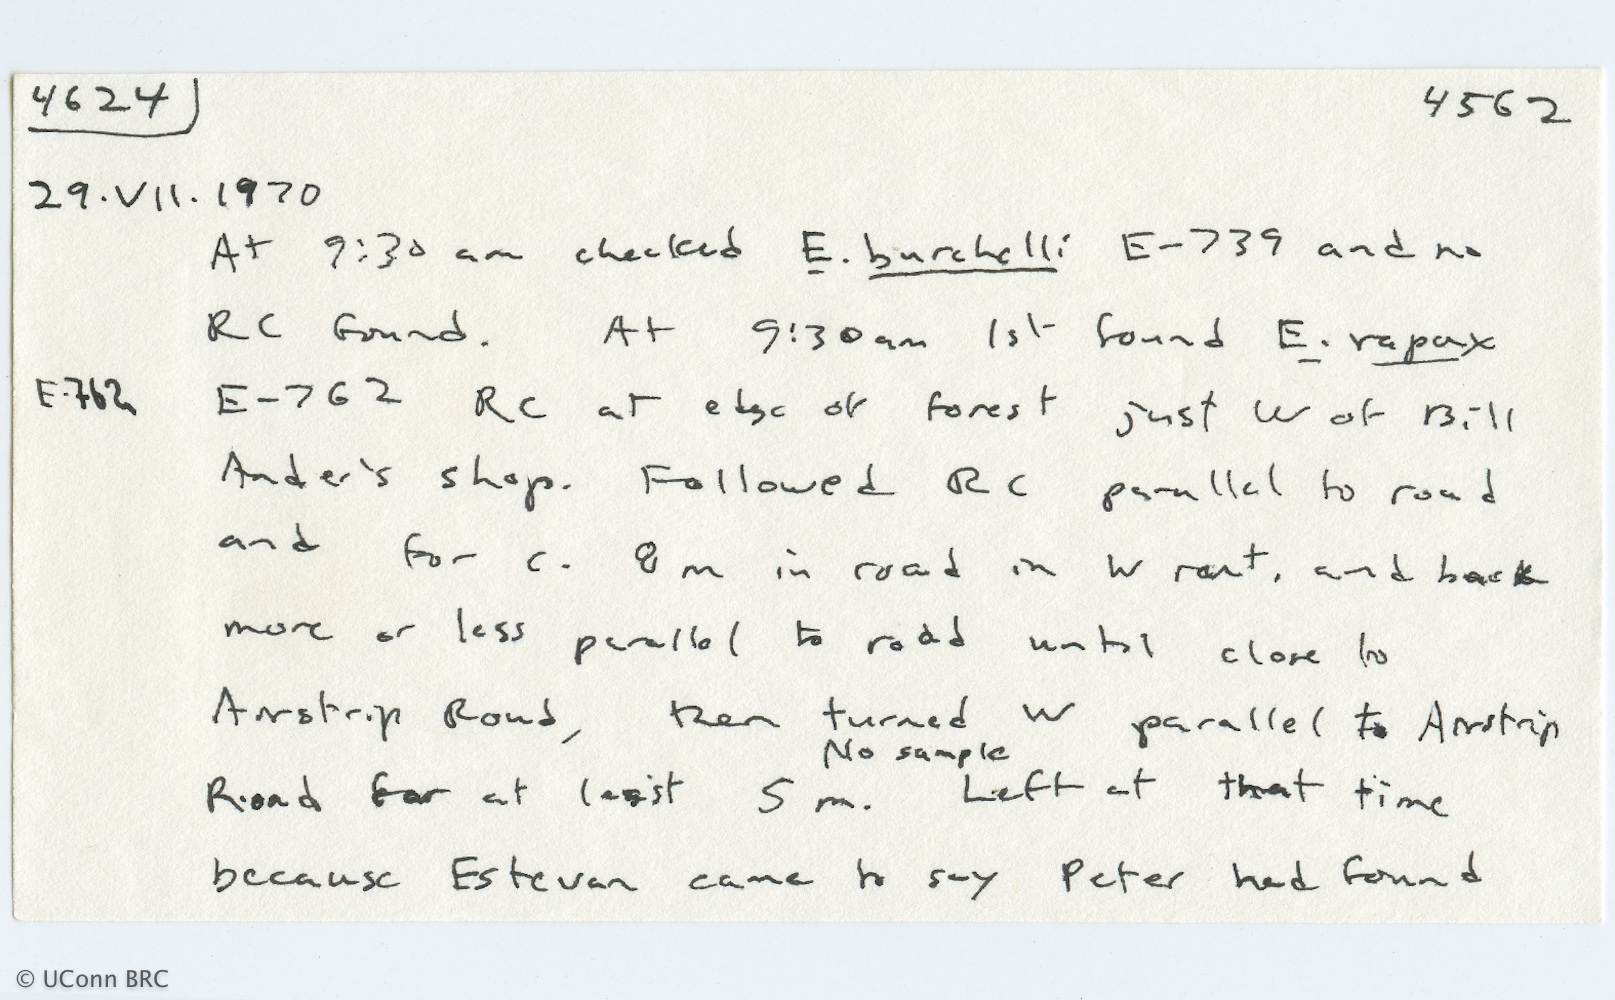 4624 4562
29.VII.1970
At 9:30 am checked E. burchelli E-739 and no
RC found. At 9:30am 1st found E. rapax
E-762 E-762 RC at edge of forest just W of Bill
Ander's shop. Followed RC parallel to road
and for c. 8 m in road in W rout, and back
more or less parallel to road until close to
Airstrip Road, then turned W parallel to Airstrip
No sample
Road for at least 5 m. Left at that time
because Estevan came to say Peter had found
© UConn BRC